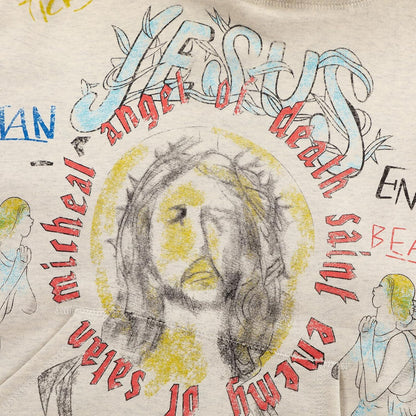 JESUS
MAN
EN
BEA
micheal angel of death saint enemy of satan